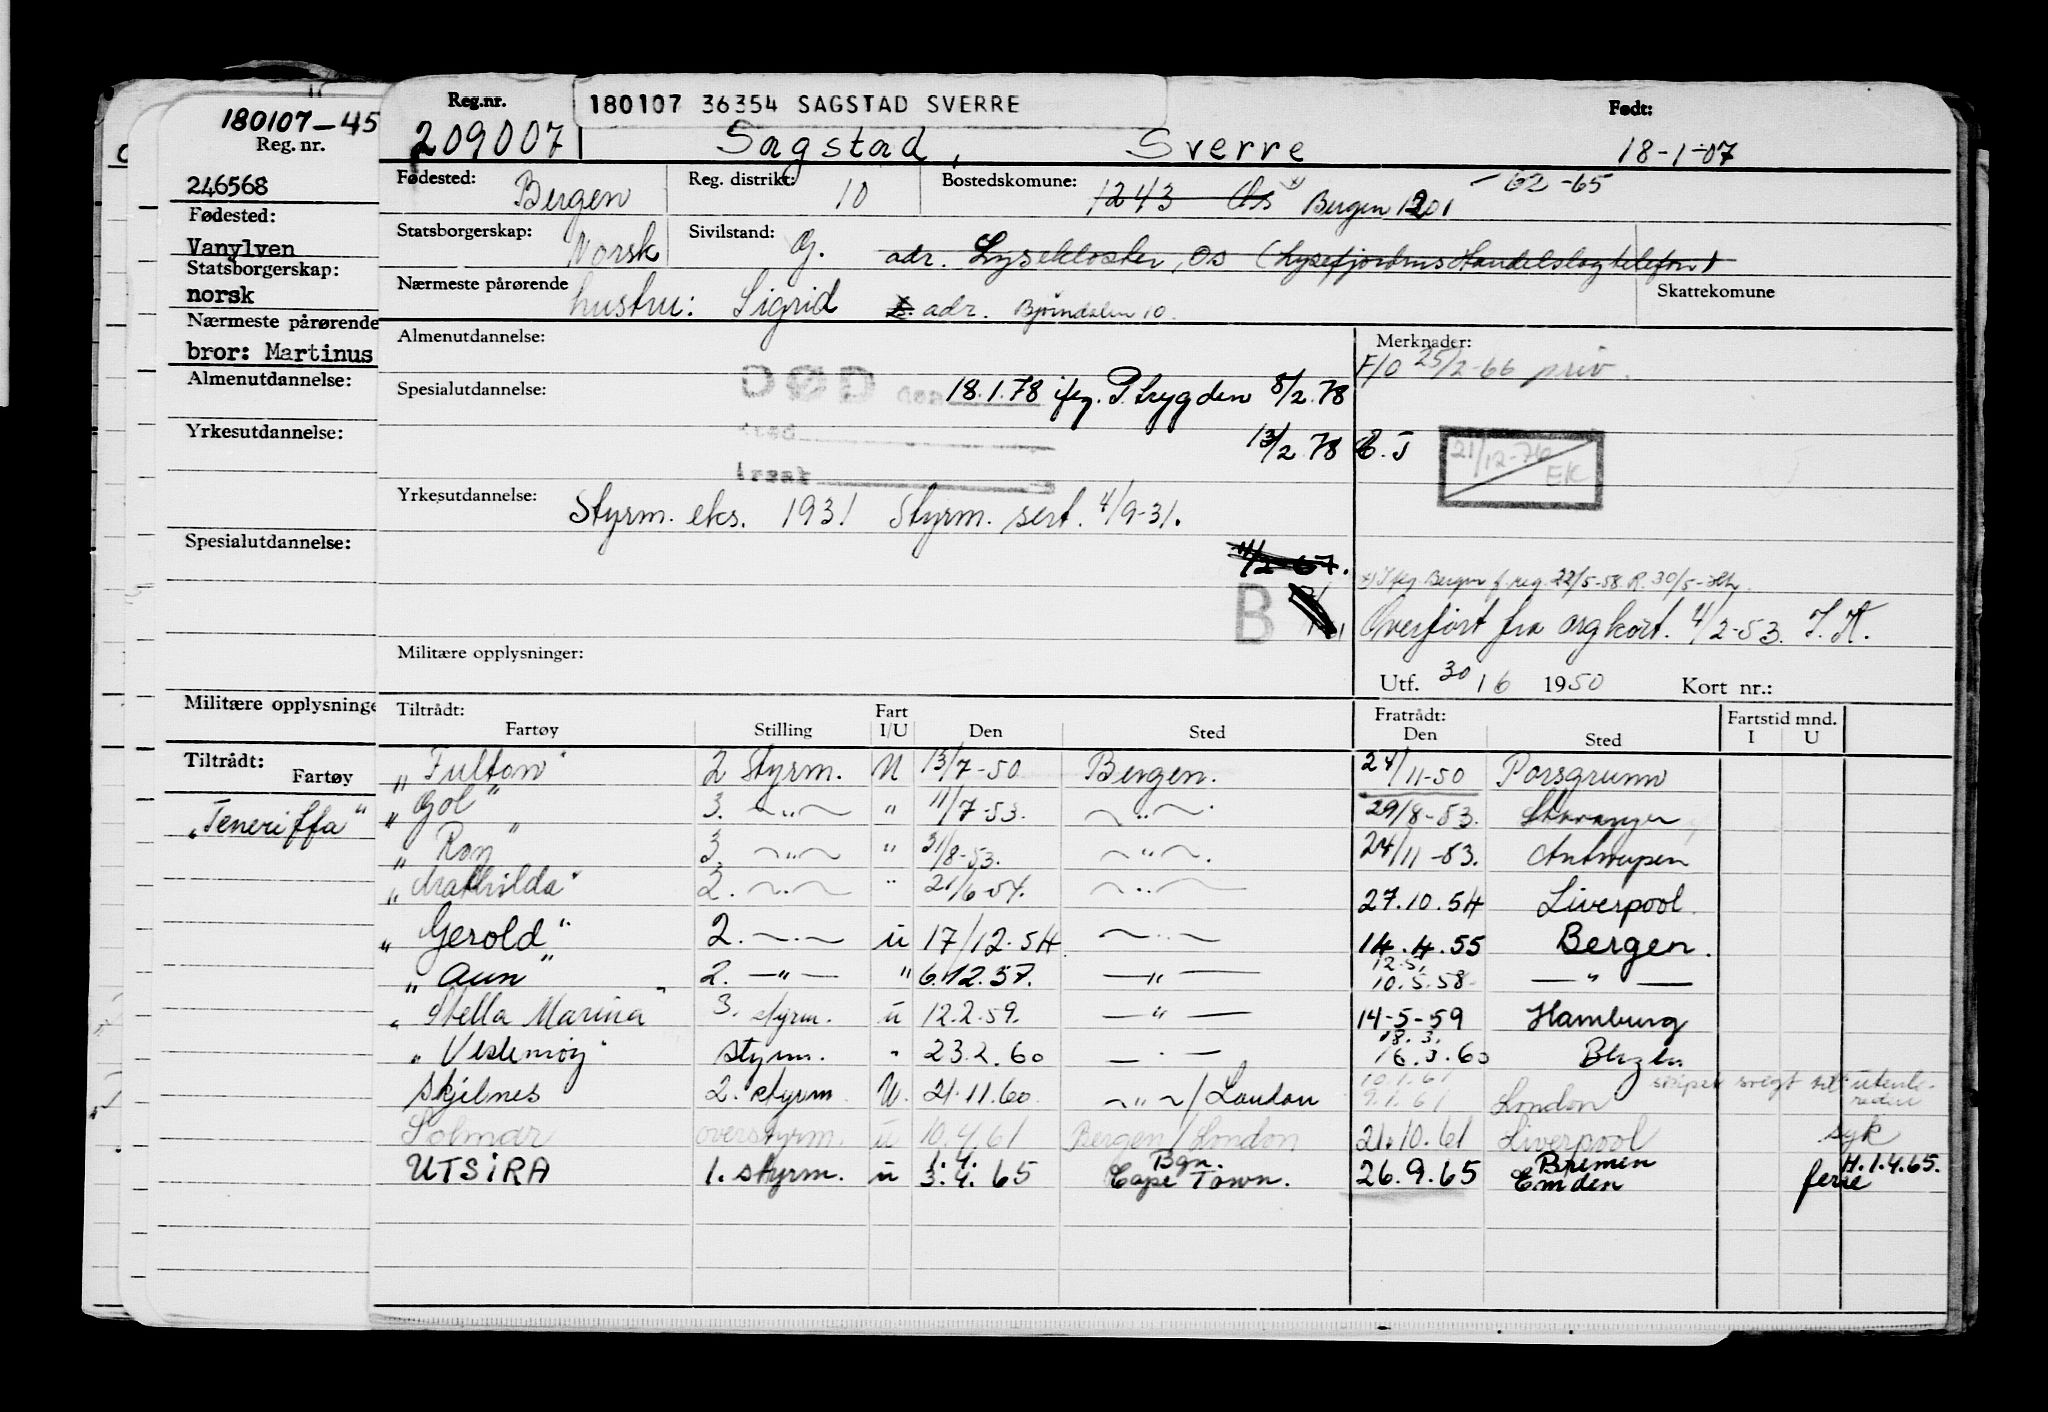 180107-45
Reg. nr.
246568
Fødested:
Vanylven
Statsborgerskap:
norsk
Nærmeste pårørende
bror: Martinus
Almenutdannelse:
Yrkesutdannelse:
Spesialutdannelse:
Militære opplysninge
Tiltrådt:
Fartøy
„Teneriffa"
Reg.nr. 180107 36354 SAGSTAD SVERRE Født:
209007 Sagstad, Sverre 18-1-07
Fødested: Bergen Reg. distrikt: 10 Bostedskomune: 1243 Os x) Bergen 1201 - 62-65
Statsborgerskap: Norsk Sivilstand: G. adr. Lysekloster, Os (Lysefjordens Handelslag telefon)
Nærmeste pårørende hustru: Sigrid adr. Bjørndalen 10. Skattekomune
Almenutdannelse: Merknader:
F/O 25/2-66 priv.
Spesialutdannelse: DØD den 18.1.78 ifg. P. trygden 8/2.78
sted 13/2.78 E.J 21/12-76 EK
årsak
Yrkesutdannelse: Styrm. eks. 1931 Styrm. sert. 4/9-31.
4/2-67.
x) Iføg Bergen f. reg. 22/5-58 R. 30/5-
B
Overført fra org kort. 4/2-53. J.K.
Militære opplysninger:
Utf. 30/6 1950 Kort nr.:
Tiltrådt: Fart Fratrådt: Fartstid mnd.
Fartøy Stilling I/U Den Sted Den Sted I U
„Fulton" 2 Styrm. U 13/7-50 Bergen. 24/11-50 Porsgrunn
„Gol" 3. -„- " 11/7-53. -„- 29/8-53. Stavanger
„Ron" 3. -„- " 31/8-53. -„- 24/11-53. Antwerpen
„Mathilda" 2. -„- " 21/6-54. -„- 27.10.54 Liverpool.
„Gerold" 2. -„- u 17/12.54 -„- 14.4.55 Bergen.
„Aun" 2. -„- " 6.12.57. -„- 12.5. 10.5.58 -„-
„Stella Marina" 3. styrm. u 12.2.59. -„- 14-5-59 Hamburg
„Vestemøy" styrm. " 23.2.60 -„- 18.3. 16.3.60
Skjelnes 2. styrm U. 21.11.60. -„-/London 10.1.61 9.1.61 London skipet solgt til utenlands rederi
Solmar overstyrm. u 10.4.61 Bergen/London 21.10.61 Liverpool syk
UTSIRA 1. styrm. u 1.4. 3.4.65 Bgn. Cape Town. 26.9.65 Bremen Emden ferie H.1.4.65.